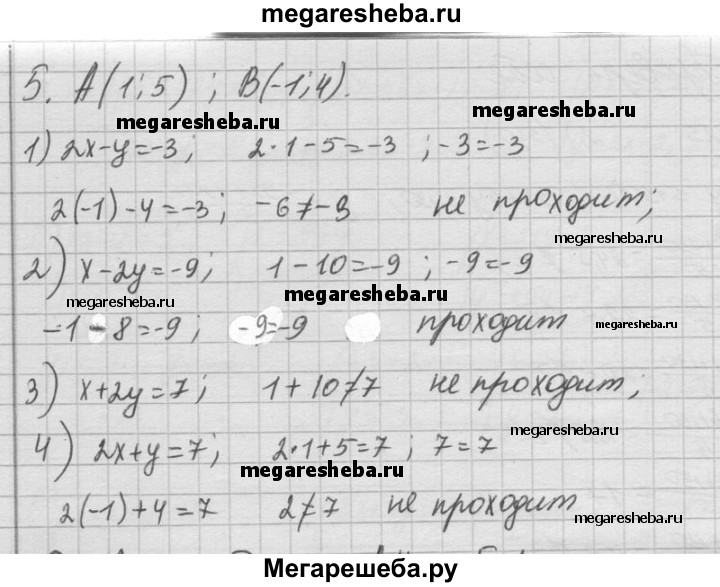 megaresheba.ru
5. A(1; 5) ; B(-1; 4).
megaresheba.ru
megaresheba.ru
1) 2x-y=-3; 2·1-5=-3 ; -3=-3
2(-1)-4=-3; -6≠-3 не проходит;
megaresheba.ru
2) x-2y=-9; 1-10=-9 ; -9=-9
megaresheba.ru
megaresheba.ru
-1-8=-9; -9=-9 проходит
megaresheba.ru
3) x+2y=7; 1+10≠7 не проходит;
megaresheba.ru
4) 2x+y=7; 2·1+5=7 ; 7=7
megaresheba.ru
2(-1)+4=7 2≠7 не проходит
megaresheba.ru
Мегарешеба.ру